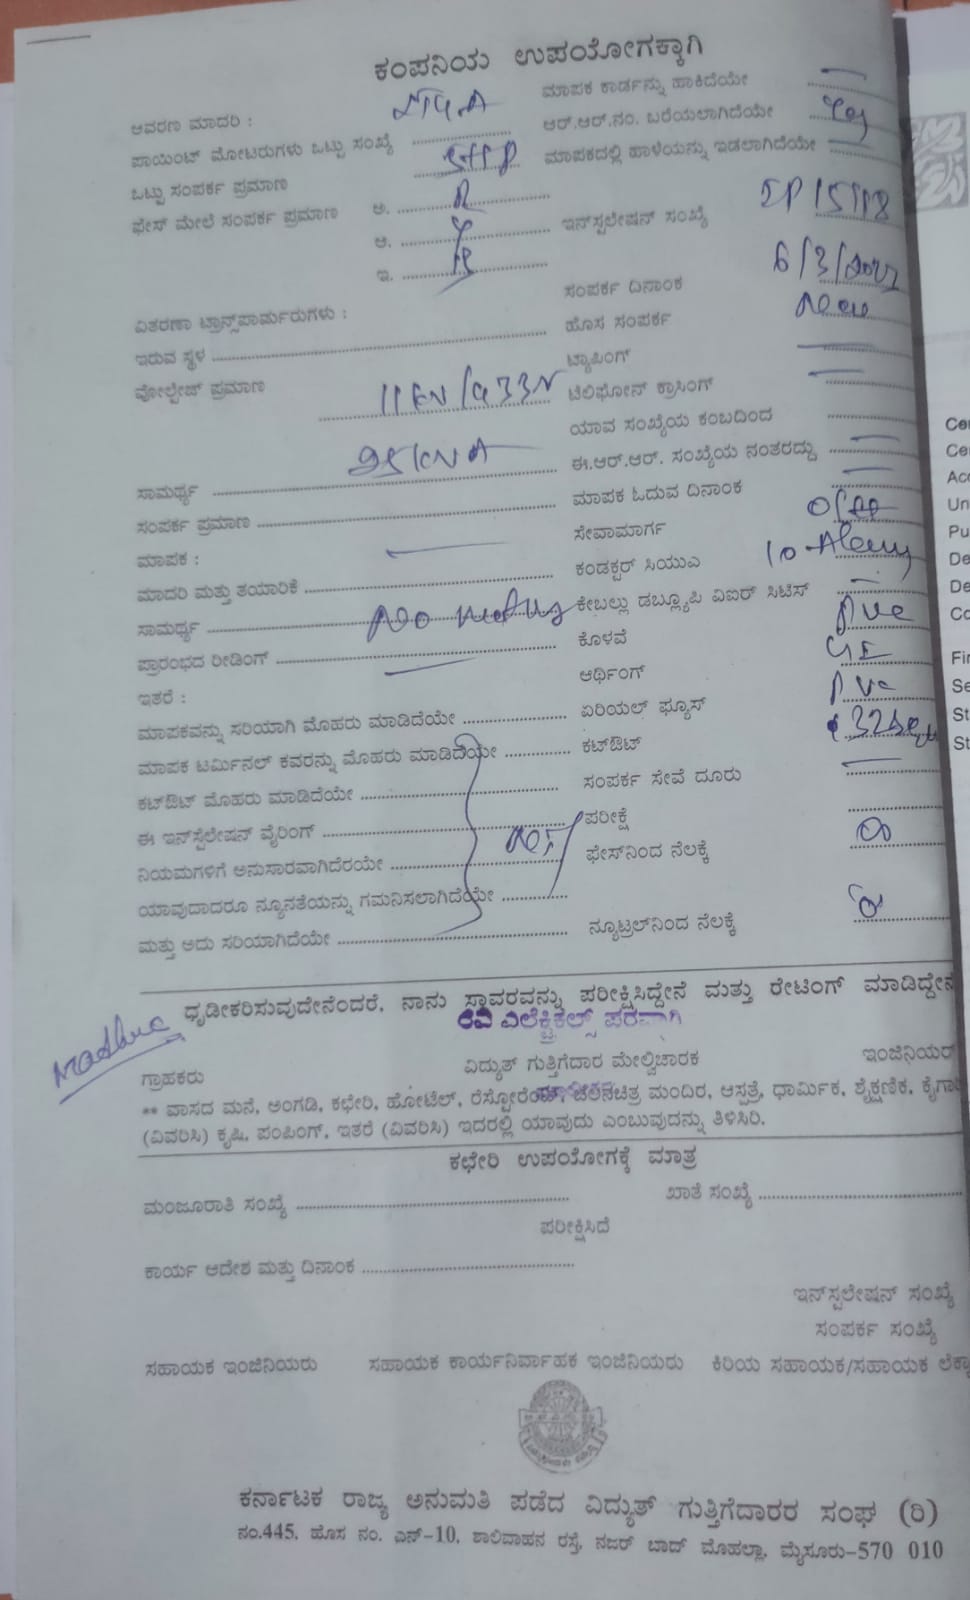 ಕಂಪನಿಯ ಉಪಯೋಗಕ್ಕಾಗಿ
ಆವರಣ ಮಾದರಿ :
ಮಾಪಕ ಕಾರ್ಡನ್ನು ಹಾಕಿದೆಯೇ
ಪಾಯಿಂಟ್ ಮೋಟರುಗಳು ಒಟ್ಟು ಸಂಖ್ಯೆ
ಆರ್.ಆರ್.ನಂ. ಬರೆಯಲಾಗಿದೆಯೇ Yes
ಒಟ್ಟು ಸಂಪರ್ಕ ಪ್ರಮಾಣ 5HP
ಮಾಪಕದಲ್ಲಿ ಹಾಳೆಯನ್ನು ಇಡಲಾಗಿದೆಯೇ
ಫೇಸ್ ಮೇಲೆ ಸಂಪರ್ಕ ಪ್ರಮಾಣ ಅ. R
ಆ. Y
ಇನ್‌ಸ್ಪಲೇಷನ್ ಸಂಖ್ಯೆ
ಇ. B
ಸಂಪರ್ಕ ದಿನಾಂಕ 6/3/2022
ವಿತರಣಾ ಟ್ರಾನ್ಸ್‌ಪಾರ್ಮರುಗಳು :
ಹೊಸ ಸಂಪರ್ಕ New
ಇರುವ ಸ್ಥಳ
ಟ್ಯಾಪಿಂಗ್
ವೋಲ್ಟೇಜ್ ಪ್ರಮಾಣ 11KV/433V
ಟೆಲಿಫೋನ್ ಕ್ರಾಸಿಂಗ್
ಯಾವ ಸಂಖ್ಯೆಯ ಕಂಬದಿಂದ
ಸಾಮರ್ಥ್ಯ 25KVA
ಈ.ಆರ್.ಆರ್. ಸಂಖ್ಯೆಯ ನಂತರದ್ದು
ಸಂಪರ್ಕ ಪ್ರಮಾಣ
ಮಾಪಕ ಓದುವ ದಿನಾಂಕ
ಮಾಪಕ :
ಸೇವಾಮಾರ್ಗ
ಮಾದರಿ ಮತ್ತು ತಯಾರಿಕೆ
ಕಂಡಕ್ಟರ್ ಸಿಯುಎ
ಸಾಮರ್ಥ್ಯ No
ಕೇಬಲ್ಲು ಡಬ್ಲ್ಯೂಪಿ ವಿಐರ್ ಸಿಟಿಸ್
ಪ್ರಾರಂಭದ ರೀಡಿಂಗ್
ಕೊಳವೆ PVC
ಇತರೆ :
ಆರ್ಥಿಂಗ್ GI
ಮಾಪಕವನ್ನು ಸರಿಯಾಗಿ ಮೊಹರು ಮಾಡಿದೆಯೇ
ಏರಿಯಲ್ ಫ್ಯೂಸ್ PVC
ಮಾಪಕ ಟರ್ಮಿನಲ್ ಕವರನ್ನು ಮೊಹರು ಮಾಡಿದೆಯೇ
ಕಟ್‌ಔಟ್
ಕಟ್‌ಔಟ್ ಮೊಹರು ಮಾಡಿದೆಯೇ
ಸಂಪರ್ಕ ಸೇವೆ ದೂರು
ಈ ಇನ್‌ಸ್ಪೆಲೇಷನ್ ವೈರಿಂಗ್
ಪರೀಕ್ಷೆ
ನಿಯಮಗಳಿಗೆ ಅನುಸಾರವಾಗಿದೆರಯೇ
ಫೇಸ್‌ನಿಂದ ನೆಲಕ್ಕೆ
ಯಾವುದಾದರೂ ನ್ಯೂನತೆಯನ್ನು ಗಮನಿಸಲಾಗಿದೆಯೇ
ಮತ್ತು ಅದು ಸರಿಯಾಗಿದೆಯೇ
ನ್ಯೂಟ್ರಲ್‌ನಿಂದ ನೆಲಕ್ಕೆ
ಧೃಡೀಕರಿಸುವುದೇನೆಂದರೆ, ನಾನು ಸ್ಥಾವರವನ್ನು ಪರೀಕ್ಷಿಸಿದ್ದೇನೆ ಮತ್ತು ರೇಟಿಂಗ್ ಮಾಡಿದ್ದೇನೆ
ರವಿ ಎಲೆಕ್ಟ್ರಿಕಲ್ಸ್ ಪರವಾಗಿ
Madhu
ಗ್ರಾಹಕರು ವಿದ್ಯುತ್ ಗುತ್ತಿಗೆದಾರ ಮೇಲ್ವಿಚಾರಕ ಇಂಜಿನಿಯರ್
** ವಾಸದ ಮನೆ, ಅಂಗಡಿ, ಕಛೇರಿ, ಹೋಟೆಲ್, ರೆಸ್ಟೋರೆಂಟ್, ಚಲನಚಿತ್ರ ಮಂದಿರ, ಆಸ್ಪತ್ರೆ, ಧಾರ್ಮಿಕ, ಶೈಕ್ಷಣಿಕ,
(ವಿವರಿಸಿ) ಕೃಷಿ, ಪಂಪಿಂಗ್, ಇತರೆ (ವಿವರಿಸಿ) ಇದರಲ್ಲಿ ಯಾವುದು ಎಂಬುವುದನ್ನು ತಿಳಿಸಿರಿ.
ಕಛೇರಿ ಉಪಯೋಗಕ್ಕೆ ಮಾತ್ರ
ಮಂಜೂರಾತಿ ಸಂಖ್ಯೆ ಖಾತೆ ಸಂಖ್ಯೆ
ಪರೀಕ್ಷಿಸಿದೆ
ಕಾರ್ಯ ಆದೇಶ ಮತ್ತು ದಿನಾಂಕ
ಇನ್‌ಸ್ಪಲೇಷನ್ ಸಂಖ್ಯೆ
ಸಂಪರ್ಕ ಸಂಖ್ಯೆ
ಸಹಾಯಕ ಇಂಜಿನಿಯರು ಸಹಾಯಕ ಕಾರ್ಯನಿರ್ವಾಹಕ ಇಂಜಿನಿಯರು ಕಿರಿಯ ಸಹಾಯಕ/ಸಹಾಯಕ
ಕರ್ನಾಟಕ ರಾಜ್ಯ ಅನುಮತಿ ಪಡೆದ ವಿದ್ಯುತ್ ಗುತ್ತಿಗೆದಾರರ ಸಂಘ (ರಿ)
ನಂ.445, ಹೊಸ ನಂ. ಎನ್-10, ಶಾಲಿವಾಹನ ರಸ್ತೆ, ನಜರ್ ಬಾದ್ ಮೊಹಲ್ಲಾ, ಮೈಸೂರು-570 010